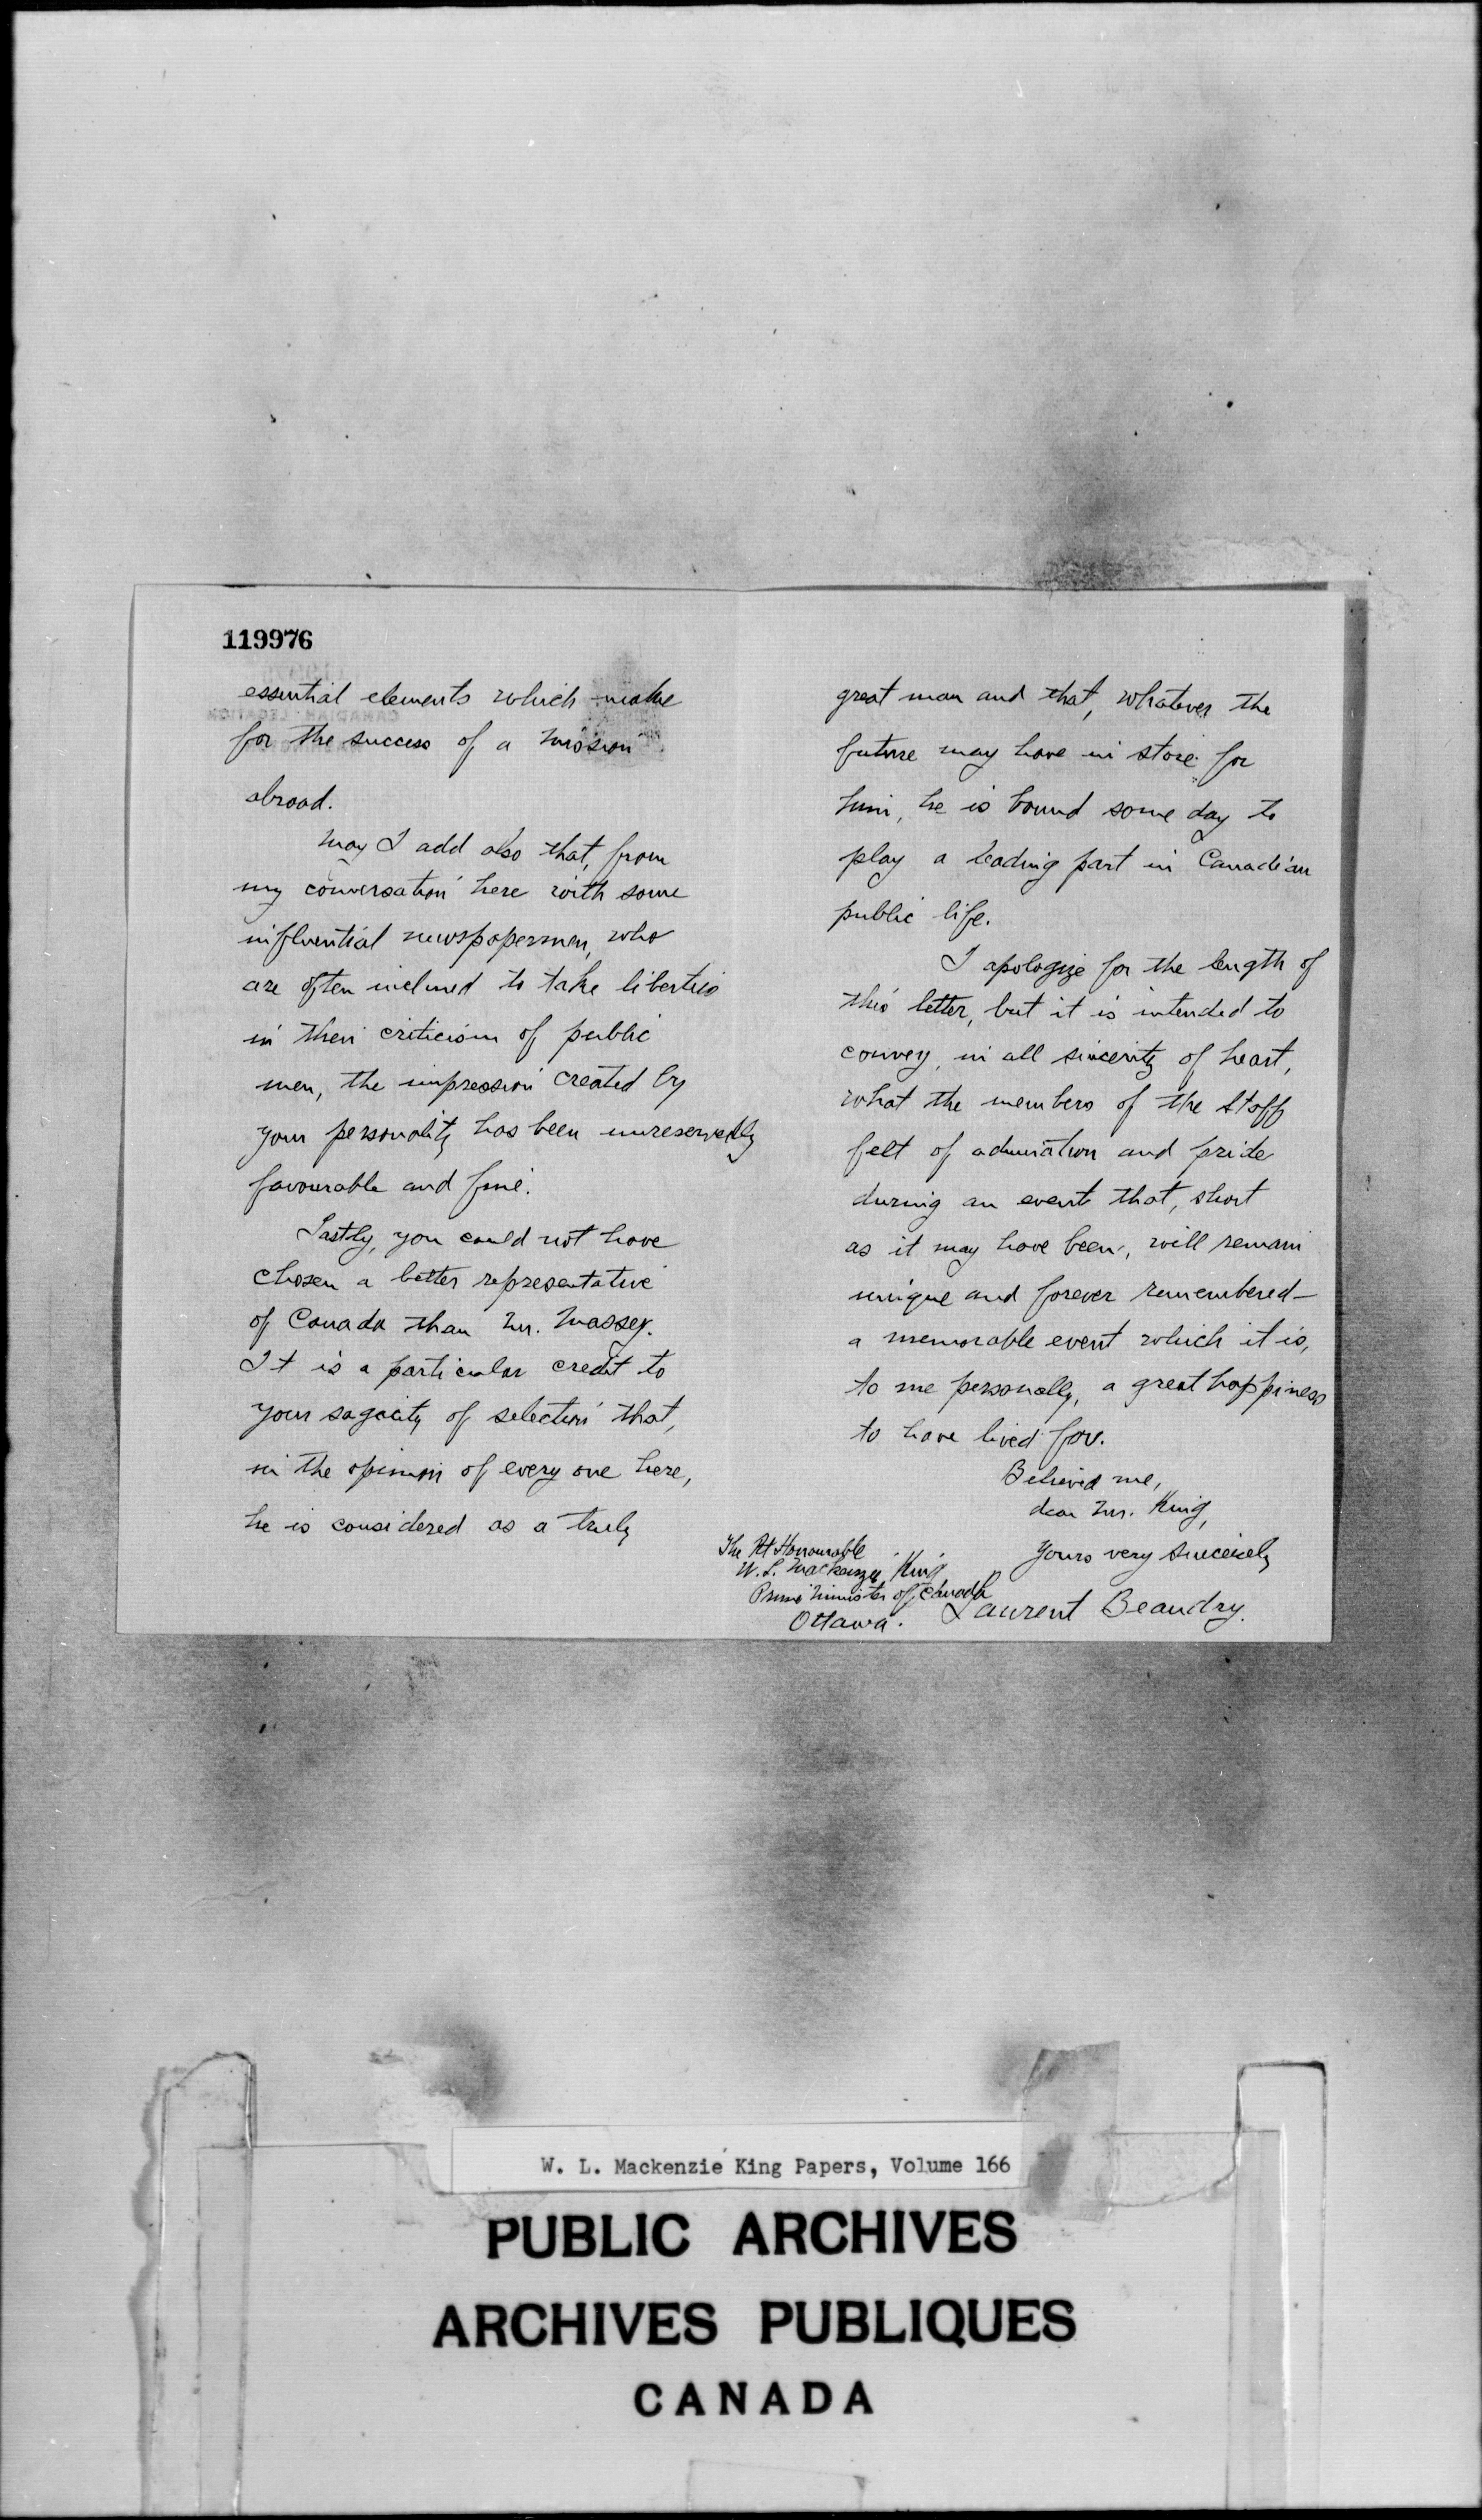 119976
essential elements which make
for the success of a mission
abroad.
May I add also that, from
my conversation here with some
influential newspapermen, who
are often inclined to take liberties
in their criticism of public
men, the impression created by
your personality has been unreservedly
favourable and fine.
Lastly, you could not have
chosen a better representative
of Canada than Mr. Massey.
It is a particular credit to
your sagacity of selection that,
in the opinion of every one here,
he is considered as a truly
great man and that, whatever the
future may have in store for
him, he is bound some day to
play a leading part in Canadian
public life.
I apologize for the length of
this letter, but it is intended to
convey, in all sincerity of heart,
what the members of the staff
felt of admiration and pride
during an event that, short
as it may have been, will remain
unique and forever remembered—
a memorable event which it is,
to me personally, a great happiness
to have lived for.
Believed me,
dear Mr. King,
Yours very sincerely
Laurent Beaudry.
The Rt Honourable
W. L. Mackenzie King
Prime Minister of Canada
Ottawa.
W. L. Mackenzie King Papers, Volume 166
PUBLIC ARCHIVES
ARCHIVES PUBLIQUES
CANADA